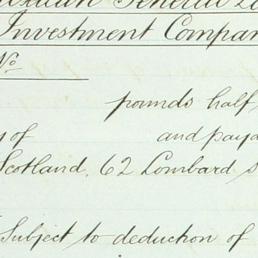 General
Investment Compan
No
pounds half
y of and paya
Scotland, 62 Lombard s
Subject to deduction of